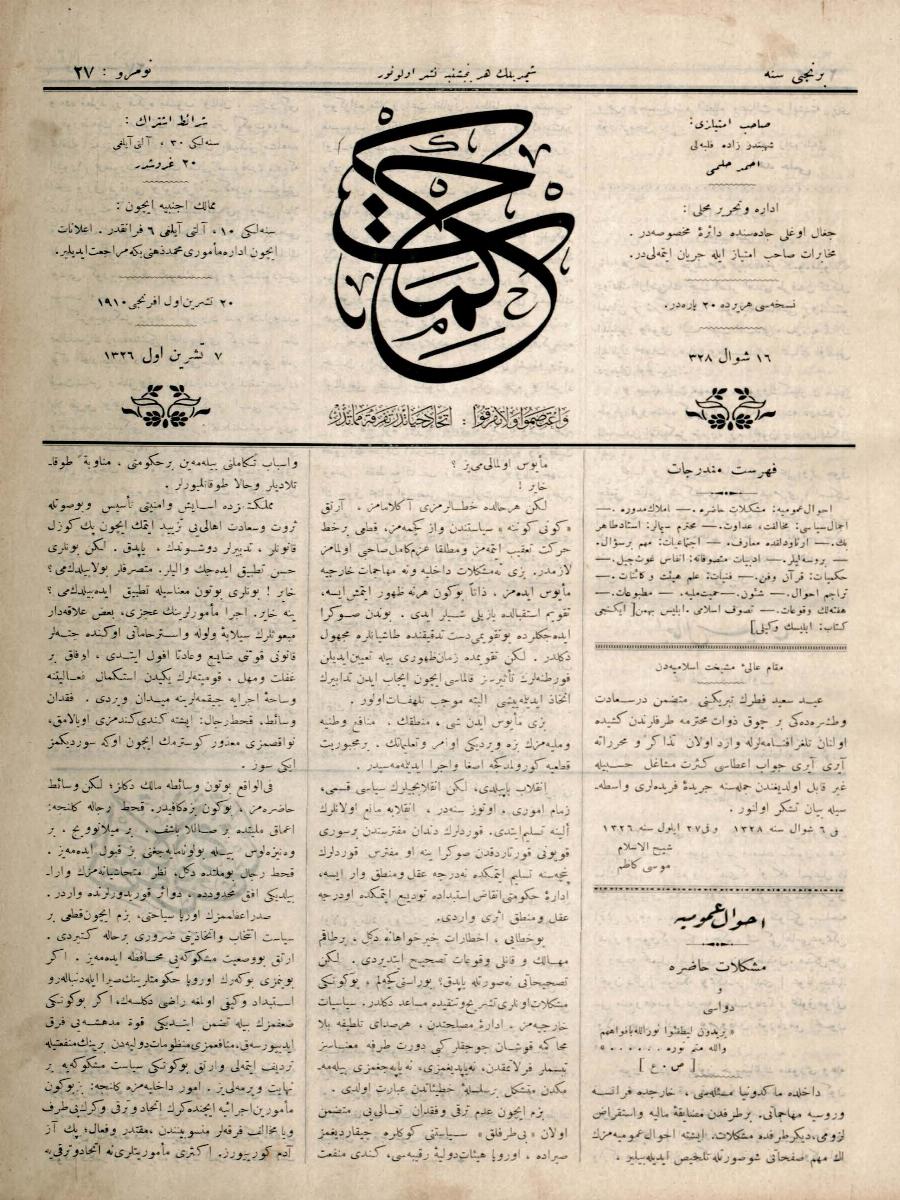 برنجی سنه
شیمدیلك هر پنجشنبه نشر اولونور
نومرو : ٢٧
صاحب امتیازی:
شهبندر زاده فلبه‌لی
احمد حلمی
اداره و تحریر محلی:
جغال اوغلی جاده‌سنده دائرهٔ مخصوصه‌در .
مخابرات صاحب امتیاز ایله جریان ایتمه‌لی‌در.
نسخه‌سی هر یرده ٢٠ پاره‌در.
١٦ شوال ٣٢٨
حكمت
واعتصموا ولا تفرقوا : اتحاد حیاتدر تفرقه مماتدر
شرائط اشتراك :
سنه‌لكی ٣٠ ، آلتی آیلغی
٢٠ غروشدر
ممالك اجنبیه ایچون :
سنه‌لكی ١٠ ، آلتی آیلغی ٦ فرانقدر . اعلانات
ایچون اداره مأموری محمد ذهنی بكه مراجعت ایدیلیر.
٢٠ تشرین اول افرنجی ١٩١٠
٧ تشرین اول ١٣٢٦
فهرست مندرجات
احوال عمومیه: مشكلات حاضره .— املاك مدوره .—
اجمال سیاسی: مخالفت، عداوت.— محترم سپالر: استاد طاهر
بك.— ارناودلقده معارف.— اجتماعیات: مهم بر سؤال.
— بروسه‌لیلر.— ادبیات متصوفانه: انفاس غوث جیل.—
حكمیات: قرآن و فن.— فنیات: علم هیئت و كائنات.—
تراجم احوال.— شئون.— حمیت ملیه .— مطبوعات.—
هفته‌لك وقوعات.— تصوف اسلامی. ابلیس بهمن [ ایكنجی
كتاب: ابلیسك وكیلی]
مقام عالیء مشیخت اسلامیه‌دن
عید سعید فطرك تبریكنی متضمن درسعادت
وطشره‌ده‌كی بر چوق ذوات محترمه طرفلرندن كشیده
اولنان تلغرافنامه‌لرله وارد اولان تذاكر و محرراته
آیری آیری جواب اعطاسی كثرت مشاغل حسبیله
غیر قابل اولدیغندن جمله‌سنه جریدهٔ فریده‌لری واسطه‌
سیله بیان تشكر اولنور .
فی ٦ شوال سنه ١٣٢٨ وفی ٢٧ ایلول سنه ١٣٢٦
شیخ الاسلام
موسی كاظم
احوال عمومیه
مشكلات حاضره
و
دواسی
« یریدون لیطفئوا نورالله بافواههم
والله متم نوره ...... »
[ ص ٤٠ ]
داخلده ماكدونیا مسئله‌سی ، خارجده فرانسه
وروسیه مهاجماتی. بر طرفدن مضایقهٔ مالیه و استقراض
لزومی، دیكر طرفده مشكلات. ایشته احوال عمومیه‌مزك
اك مهم صفحاتی شو صورتله تلخیص ایدیله‌بیلیر .
مأیوس اولمالی‌می‌یز ؟
خایر !
لكن هر حالده خطالرمزی آكلامامز . آرتق
«كونی كوننه» سیاستندن واز كچمه‌مز، قطعی بر خط
حركت تعقیب ایتمه‌مز و مطلقا عزم كامل صاحبی اولمامز
لازمدر. بزی نه مشكلات داخلیه و نه مهاجمات خارجیه
مأیوس ایده‌مز ، ذاتا بوكون هر نه ظهور ایتمش ایسه،
تقویم استقبالده یازیلی شیلر ایدی . بوندن صوكرا
ایده‌جكلرده بو تقویمی دست تدقیقنده طاشیانلره مجهول
دكلدر . لكن تقویمده زمان ظهوری بیله تعیین ایدیلن
فورطنه‌لرك تأثیرسز قالماسی ایچون ایجاب ایدن تدابیرك
اتخاذ ایدیلمه‌ییشی البته موجب تلهفات اولور .
بزی مأیوس ایدن شی ، منطقك ، منافع وطنیه
وملیه‌مزك بزه ویردیكی اوامر و تعلیماتك ، بر مجبوریت
قطعیه كورولمدكجه اصغا و اجرا ایدیلمه‌مسیدر .
انقلاب یاپیلدی، لكن انقلابجیلرك سیاسی قسمی،
زمام اموری ، اوتوز سنه‌در ، انقلابه مانع اولانلرك
ألینه تسلیم ایتدی. قوردلرك دندان مفترسندن بر سوری
قویونی قورتاردقدن صوكرا ینه او مفترس قوردلرك
پنجه‌سنه تسلیم ایتمكده نه درجه عقل و منطق وار ایسه،
ادارهٔ حكومتی انقاض استبداده تودیع ایتمكده او درجه
عقل و منطق اثری واردی.
بو خطایی ، اخطارات خیرخواهانه دكل ، بر طاقم
مهالك و قانلی وقوعات تصحیح ایتدیردی . لكن
تصحیحاتی نه صورتله یاپدق؟ بوراسنی كچه‌لم ، بوكونكی
مشكلات اونلری تشریح و تنقیده مساعد دكلدر. سیاسیات
خارجیه‌مز . ادارهٔ مصلحتدن ، هر صدای تلطیفه بلا
محاكمه قوشان چوجقلر كبی دورت طرفه معناسز
تبسملر فرلاتمقدن، نه یاپدیغمزی، نه یاپه‌جغمزی بیله‌مه‌
مكدن متشكل بر سلسلهٔ خطیئاتدن عبارت اولدی .
بزم ایچون عدم ترقی و فقدان تعالی‌یی متضمن
اولان «بی‌طرفلق» سیاستنی كوكلره چیقاردیغمز
صیراده ، اوروپا هیئات دولیهٔ رقیبه‌سی، كندی منفعت
واسباب تكاملنی بیله‌مه‌ین بر حكومتی ، مناوبهٔ طوقا‌
تلادیلر و حالا طوقاتلیورلر .
مملكتمزده آسایش و امنیتی تأسیس و بو صورتله
ثروت و سعادت اهالی‌یی تزیید ایتمك ایچون پك كوزل
قانونلر ، تدبیرلر دوشوندك ، یاپدق . لكن بونلری
حسن تطبیق ایده‌جك والیلر. متصرفلر بولابیلدك‌می؟
خایر ! بونلری بوتون معناسیله تطبیق ایده‌بیلدك‌می ؟
ینه خایر. اجرا مأمورلرینك عجزی، بعض علاقه‌دار
مبعوثلرك سیلابهٔ ولوله و استرحاماتی اوكنده جتنه‌لر
قانونی قوتنی ضایع و عادتا افول ایتدی ، اوفاق بر
غفلت و مهل . قومیته‌لرك یكیدن استكمال فعالیتنه
وساحهٔ اجرایه چیقمه‌لرینه میدان ویردی . فقدان
وسائط، قحط رجال: ایشته كندی كندمزی اویالامق،
نواقصمزی معذور كوسترمك ایچون اوكه سوردیكمز
ایكی سوز .
فی‌الواقع بوتون وسائطه مالك دكلز؛ لكن وسائط
حاضره‌مز ، بوكون بزه كافیدر. قحط رجاله كلنجه:
اعماق ملیتده بر صاللا باشف . بر میلانوویچ ، بر
وه‌نیزه‌لوس بیله بولونمایه‌جغنی بز قبول ایده‌مه‌یز .
قحط رجال بو ملتده دكل. نظر متحاشیانه‌مزك وارا‌
بیلدیكی افق محدودده . دوائر قوریدورلرنده واردر .
صدراعظممزك اوروپا سیاحتی، بزم ایچون قطعی بر
سیاست انتخاب و اتخاذینی ضروری بر حاله كتیردی .
آرتق بو وضعیت مشكوكه‌یی محافظه ایده‌مه‌یز . اكر
بونمزی بوكه‌رك اوروپا حكومتلرینك صیرا ایله دنباله‌رو
استبداد و كیفی اولمغه راضی دكلسه‌ك، اكر بوكونكی
ضعفمزك بیله تضمن ایتدیكی قوهٔ مدهشه‌یی فرق
ایدییورسه‌ق، منافعمزی منظومات دولیه‌دن برینك منفعتیله
تردیف ایتمه‌لی و آرتق بوكونكی سیاست مشكوكه‌یه بر
نهایت ویرمه‌لی‌یز . امور داخلیه‌مزه كلنجه: بز بوكون
مأمورین اجرائیه ایچنده كرك اتحاد و ترقی و كرك بی‌طرف
ویا مخالف فرقه‌لر منسوبیندن ، مقتدر و فعال؛ پك آز
آدم كورییورز. اكثری مأموریتلری نه اتحاد و ترقی‌یه